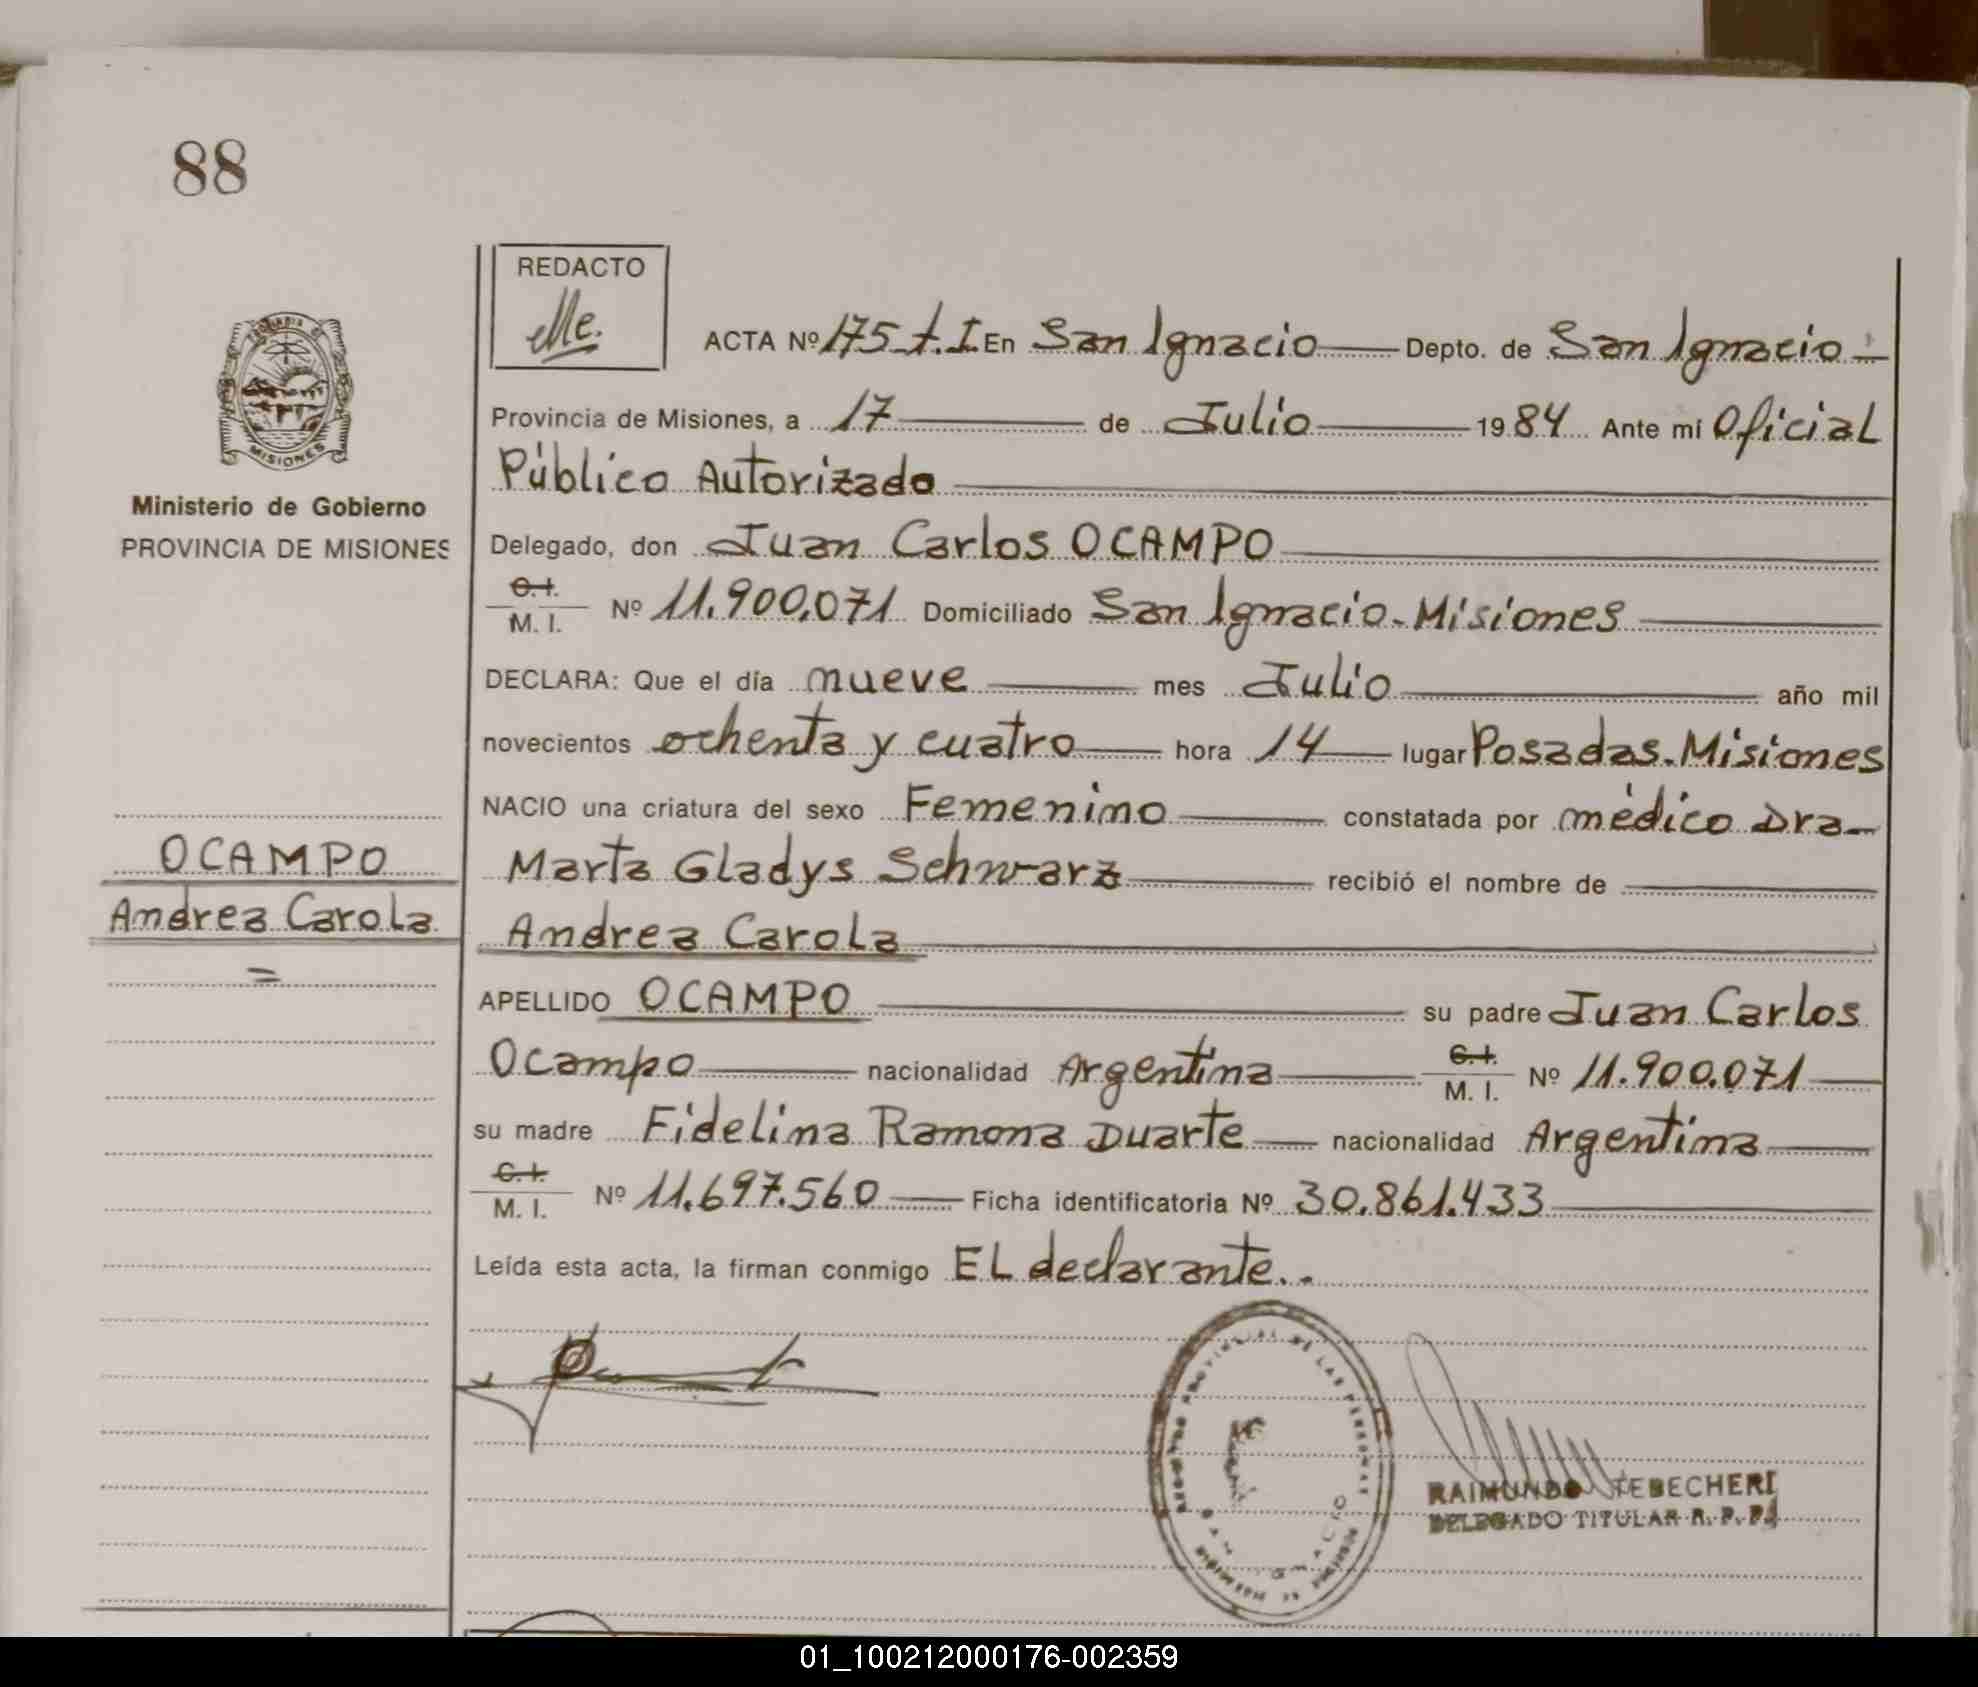 88
REDACTO
Me.
ACTA Nº 175 t.I En San Ignacio Depto. de San Ignacio
Provincia de Misiones, a 17 de Julio 1984 Ante mí Oficial
Público Autorizado
Ministerio de Gobierno
PROVINCIA DE MISIONES
Delegado, don Juan Carlos OCAMPO
C.I.
M. I. Nº 11.900.071 Domiciliado San Ignacio - Misiones
DECLARA: Que el día nueve mes Julio año mil
novecientos ochenta y cuatro hora 14 lugar Posadas - Misiones
NACIO una criatura del sexo Femenino constatada por médico Dra
Marta Gladys Schwarz recibió el nombre de
OCAMPO
Andrea Carola
=
Andrea Carola
APELLIDO OCAMPO su padre Juan Carlos
Ocampo nacionalidad Argentina C.I. M. I. Nº 11.900.071
su madre Fidelina Ramona Duarte nacionalidad Argentina
C.I.
M. I. Nº 11.697.560 Ficha identificatoria Nº 30.861.433
Leída esta acta, la firman conmigo EL declarante..
MISIONES
PROVINCIAL DE LAS PERSONAS
SAN IGNACIO
RAIMUNDO TEBECHERI
DELEGADO TITULAR R. P. P.
01_100212000176-002359